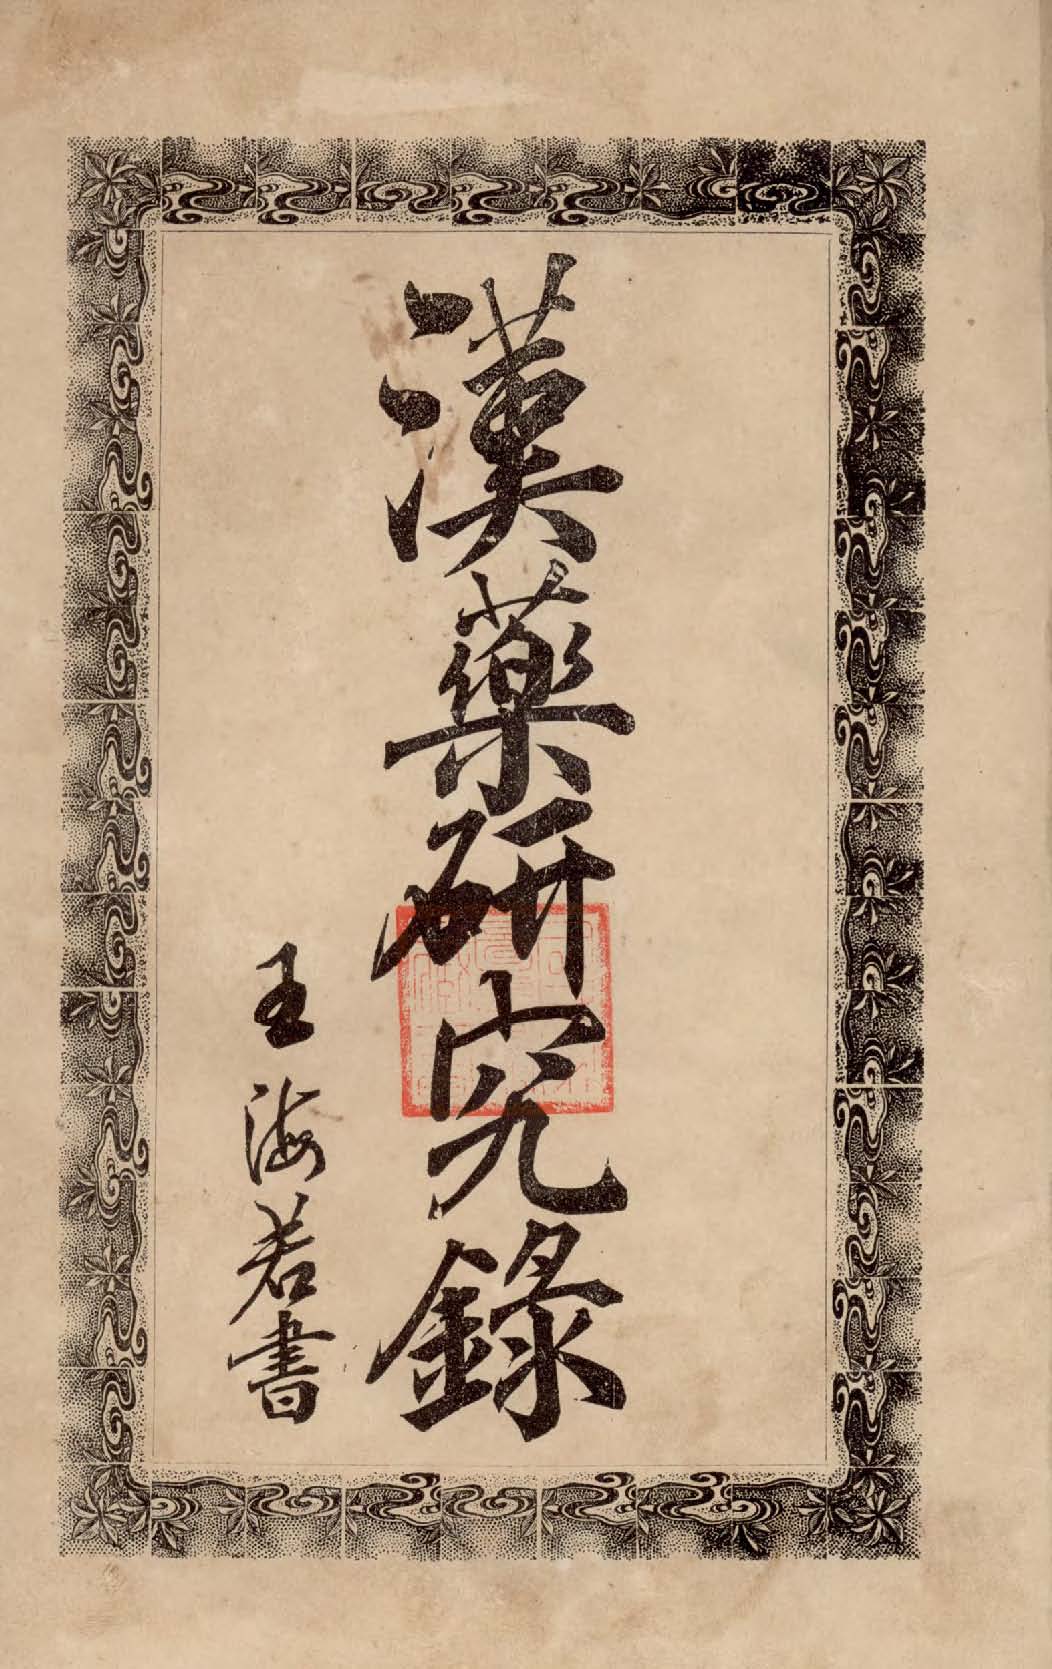 漢藥研究錄
王海若書